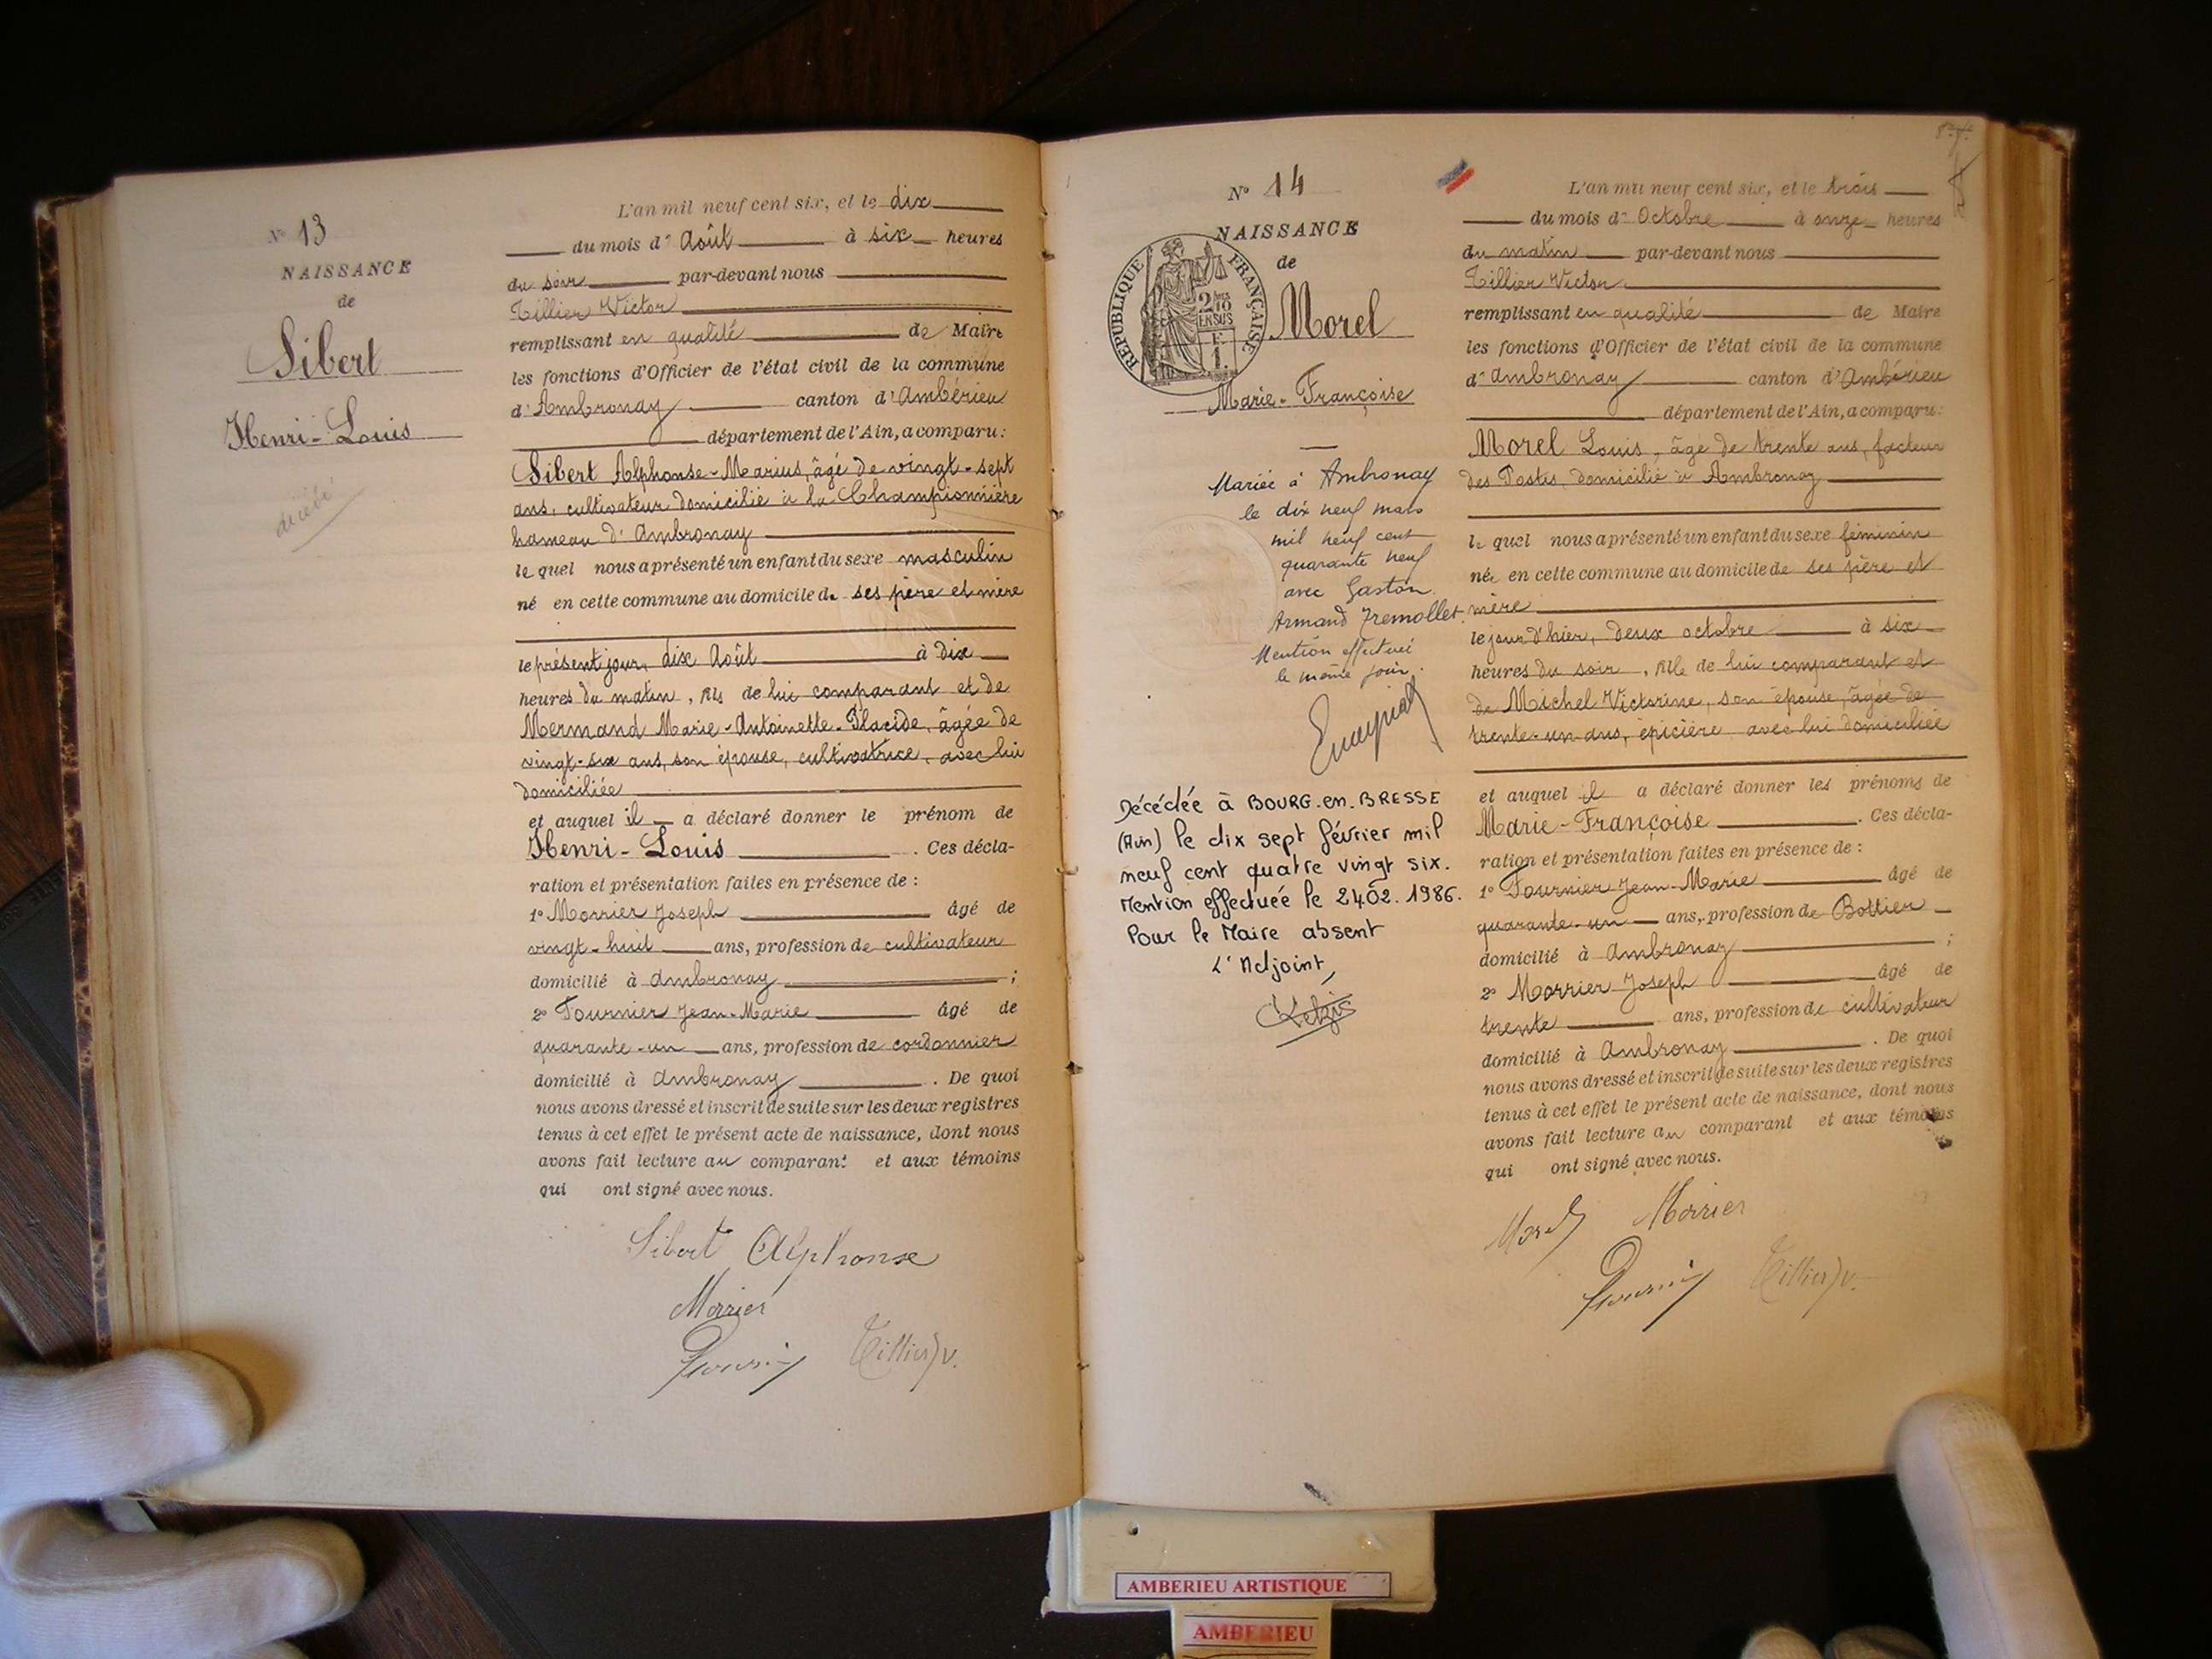 N° 13
NAISSANCE
de
Sibert
Henri-Louis
décédé
L'an mil neuf cent six, et le dix
du mois d' Août à six heures
du soir par-devant nous
Tillier Victor
remplissant en qualité de Maire
les fonctions d'Officier de l'état civil de la commune
d'Ambronay canton d'Ambérieu
département de l'Ain, a comparu:
Sibert Alphonse-Marius, âgé de vingt-sept
ans, cultivateur domicilié à la Championnière
hameau d'Ambronay
lequel nous a présenté un enfant du sexe masculin
né en cette commune au domicile de ses père et mère
le présent jour, dix Août à dix
heures du matin, fils de lui comparant et de
Mermand Marie-Antoinette-Placide, âgée de
vingt-six ans, son épouse, cultivatrice, avec lui
domiciliée
et auquel il a déclaré donner le prénom de
Henri-Louis. Ces décla-
ration et présentation faites en présence de :
1° Morrier Joseph âgé de
vingt-huit ans, profession de cultivateur
domicilié à Ambronay ;
2° Fournier Jean-Marie âgé de
quarante-un ans, profession de cordonnier
domicilié à Ambronay. De quoi
nous avons dressé et inscrit de suite sur les deux registres
tenus à cet effet le présent acte de naissance, dont nous
avons fait lecture au comparant et aux témoins
qui ont signé avec nous.
Sibert Alphonse
Morrier
Tillier V.
N° 14
NAISSANCE
de
REPUBLIQUE FRANÇAISE
2/10 EN SUS
Morel
Marie-Françoise
Mariée à Ambronay
le dix neuf mars
mil neuf cent
quarante neuf
avec Gaston
Armand Tremollet.
Mention effectuée
le même jour.
Décédée à BOURG-en-BRESSE
(Ain) le dix sept février mil
neuf cent quatre vingt six.
Mention effectuée le 24.02.1986.
Pour le Maire absent
L'Adjoint,
L'an mil neuf cent six, et le trois
du mois d' Octobre à onze heures
du matin par-devant nous
Tillier Victor
remplissant en qualité de Maire
les fonctions d'Officier de l'état civil de la commune
d'Ambronay canton d'Ambérieu
département de l'Ain, a comparu:
Morel Louis, âgé de trente ans, facteur
des Postes, domicilié à Ambronay
lequel nous a présenté un enfant du sexe féminin
née en cette commune au domicile de ses père et
mère
le jour d'hier, deux octobre à six
heures du soir, fille de lui comparant et
de Michel Victorine, son épouse, âgée de
trente-un ans, épicière avec lui domiciliée
et auquel il a déclaré donner les prénoms de
Marie-Françoise. Ces décla-
ration et présentation faites en présence de :
1° Fournier Jean-Marie âgé de
quarante-un ans, profession de Bottier
domicilié à Ambronay ;
2° Morrier Joseph âgé de
trente ans, profession de cultivateur
domicilié à Ambronay. De quoi
nous avons dressé et inscrit de suite sur les deux registres
tenus à cet effet le présent acte de naissance, dont nous
avons fait lecture au comparant et aux témoins
qui ont signé avec nous.
Morel Morrier
Tillier V.
AMBERIEU ARTISTIQUE
AMBERIEU